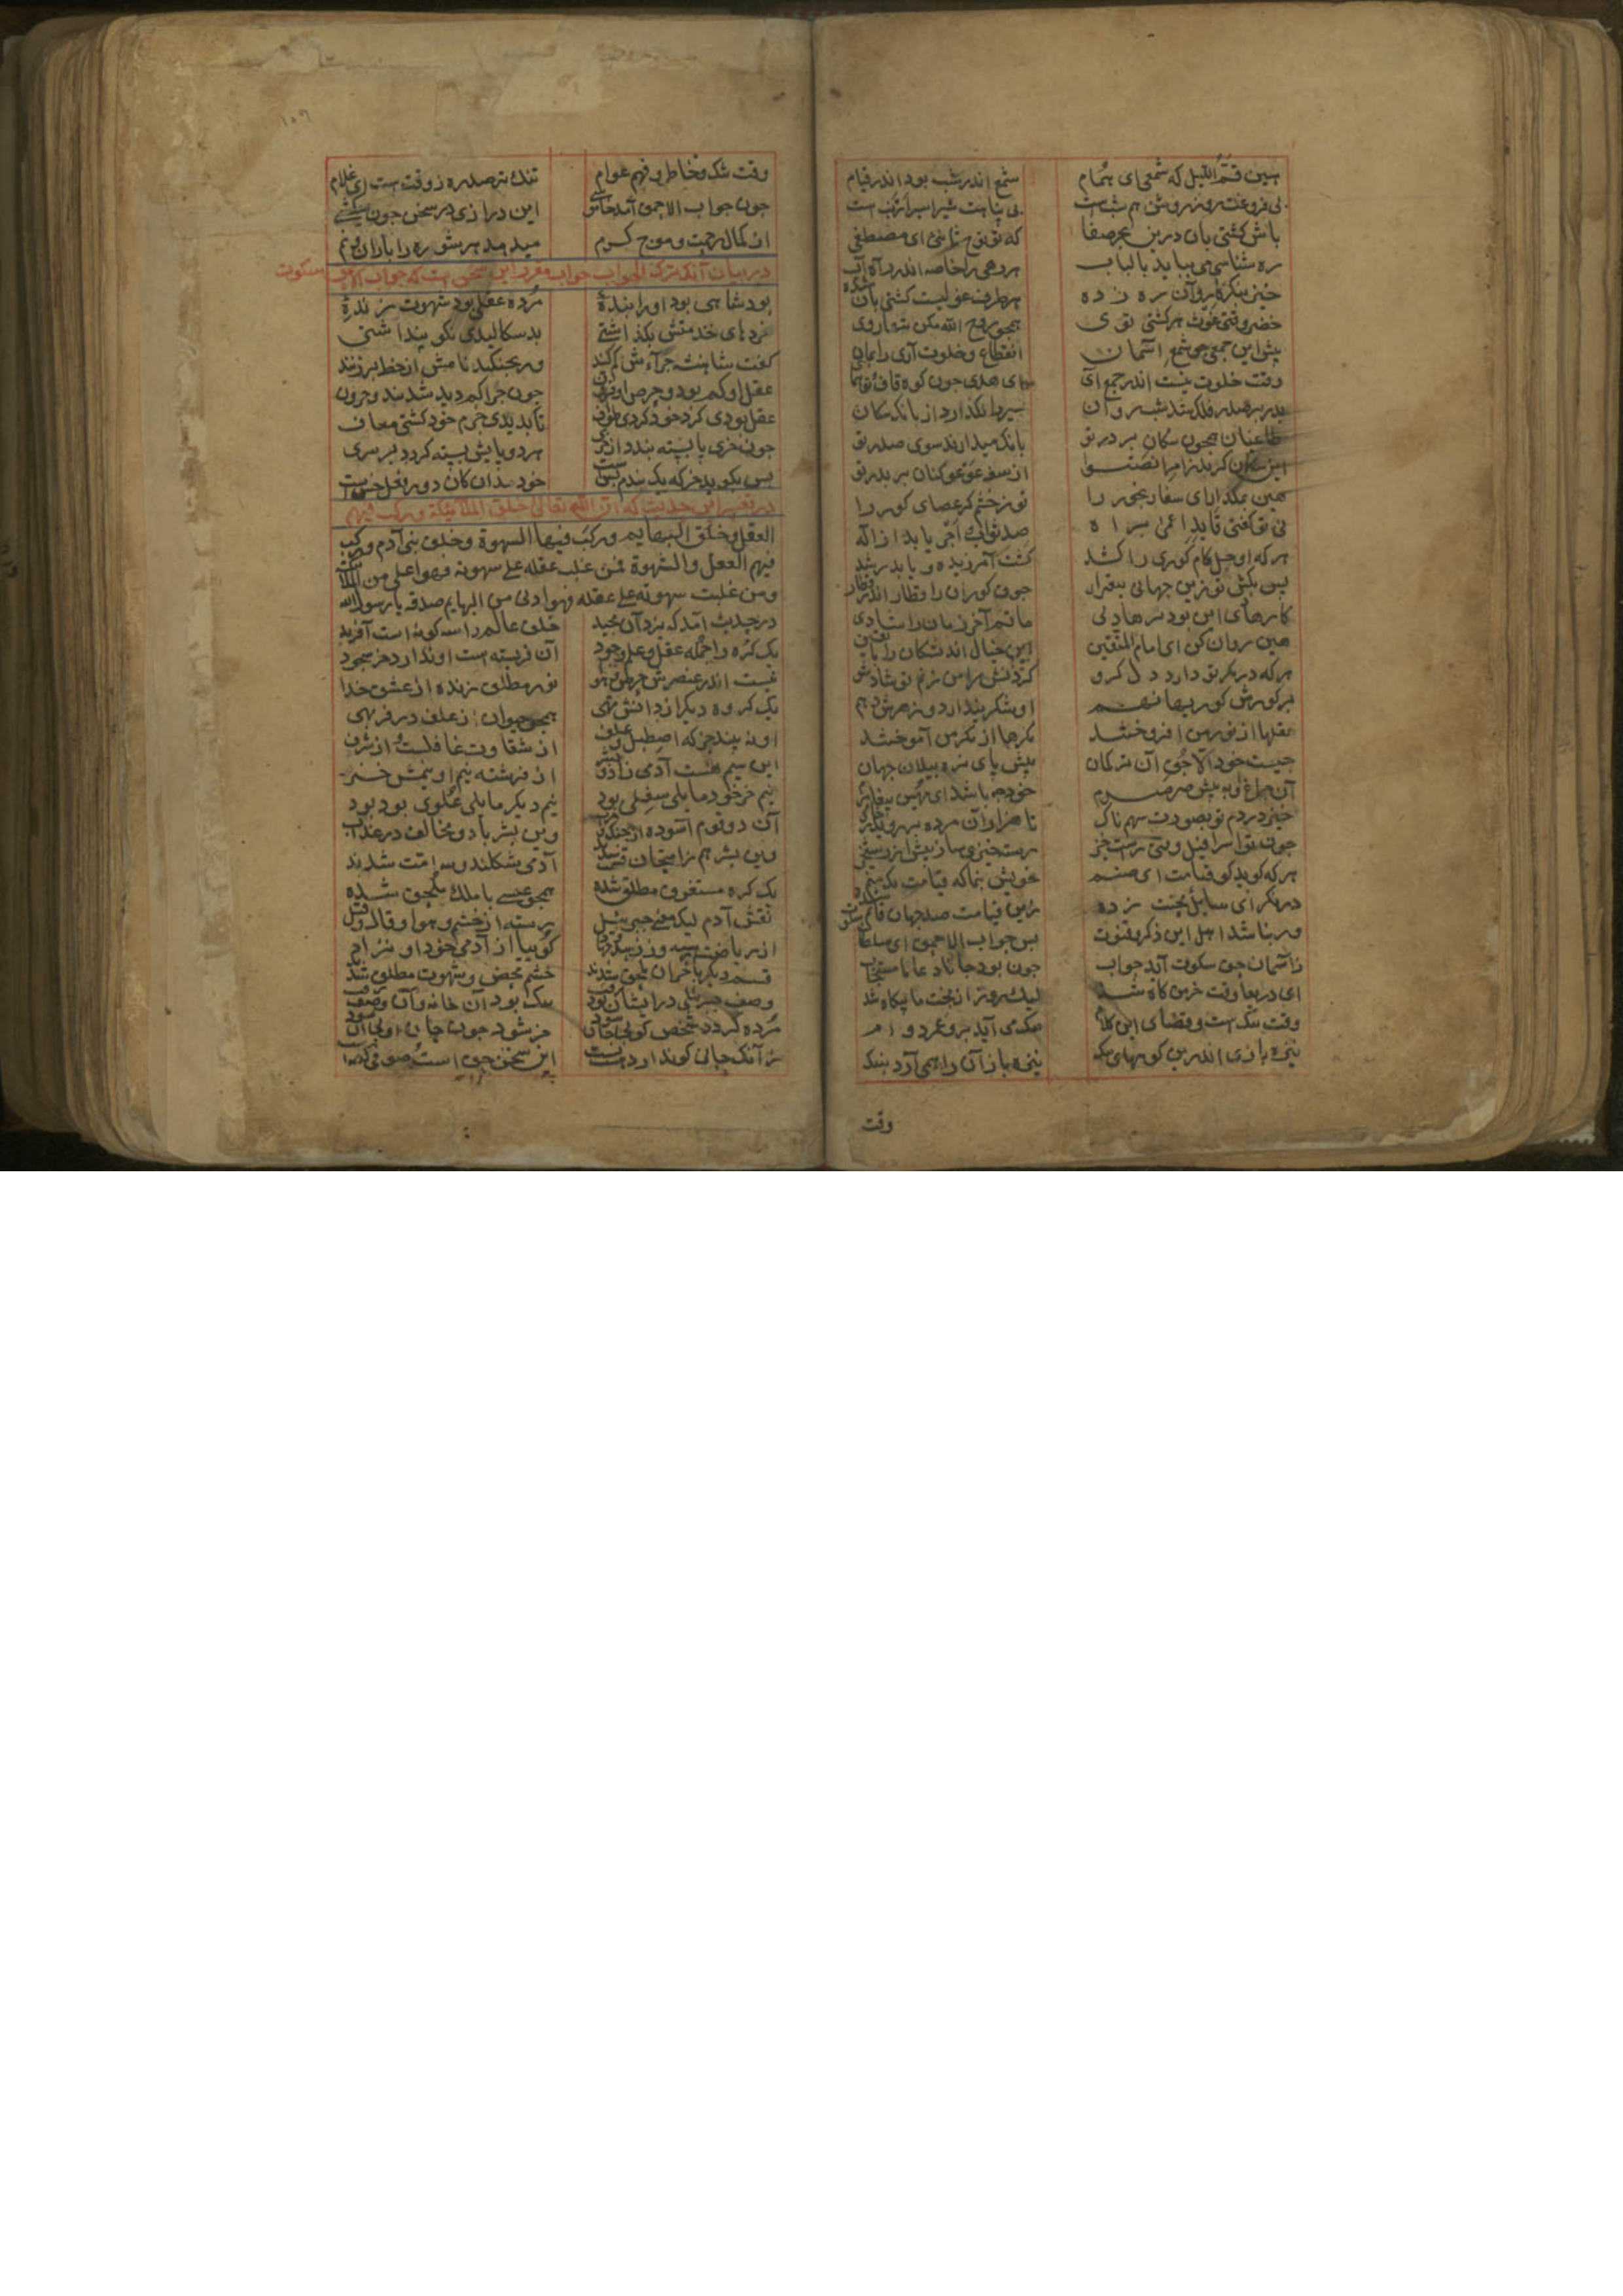 هین قم اللیل که شمعی ای همام شمع اندر شب بود اندر قیام
بی فروغت روز روشن هم شبست بی پناهت شیر اسیر ارنبست
باش کشتی بان درین بحر صفا که تو نوح ثانیی ای مصطفی
ره شناسی می بباید با لباب هر رهی را خاصه اندر راه آب
خیز بنگر کاروان ره زده هر طرف غولیست کشتی بان شده
خضر وقتی غوث هر کشتی توی همچو روح الله مکن تنها روی
پیش این جمعی چو شمع آسمان انقطاع و خلوت آری را بمان
وقت خلوت نیست اندر جمع آی ای هدی چون کوه قاف و تو همای
بدر بر صدر فلک شد شب روان سیر را نگذارد از بانک سکان
طاعنان همچون سکان بر بدر تو بانک میدارند سوی صدر تو
این سکان کرند ز امر انصتوا از سفه عوعو کنان بر بدر تو
هین بمگذار ای شفا رنجور را تو ز خشم کر عصای کور را
نی تو گفتی قاید اعمی براه صد ثواب و اجر یابد از اله
هر که او چل گام کوری را کشد گشت آمرزیده و یابد رشد
پس بکش تو زین جهان بیقرار جوق کوران را قطار اندر قطار
کار هادی این بود تو هادیی ماتم آخر زمان را شادیی
هین روان کن ای امام المتقین این خیال اندیشکان را تا یقین
هر که در مکر تو دارد دل گرو گردنش را من زنم تو شاد رو
بر سر کوریش کوریها نهم او شکر پندارد و زهرش دهم
عقلها از نور من افروختند مکرها از مکر من آموختند
چیست خود آلاجق آن ترکمان پیش پای نره پیلان جهان
آن چراغ او به پیش صرصرم خود چه باشد ای مهین پیغامبرم
خیز در دم تو بصور سهمناک تا هزاران مرده بر روید ز خاک
چون تو اسرافیل وقتی راست خیز رستخیزی ساز پیش از رستخیز
هر که گوید کو قیامت ای صنم خویش بنما که قیامت نک منم
در نگر ای سایل محنت زده زین قیامت صد جهان قایم شده
ور نباشد اهل این ذکر و قنوت پس جواب الاحمق ای سلطان سکوت
ز آسمان حق سکوت آید جواب چون بود جانا دعا نامستجاب
ای دریغا وقت خرمن گاه شد لیک روز از بخت ما بیگاه شد
وقت تنگ است و فضای این کلام تنگ می آید برو عمر دوام
نیزه بازی اندرین کوهای تنگ نیزه بازان را همی آرد بتنگ
وقت
وقت تنگ و خاطر و فهم عوام تنگ تر صد ره ز وقت است ای غلام
چون جواب الاحمق آمد خامشی این درازی در سخن چون میکشی
از کمال رحمت و موج کرم میدهد هر شوره را باران و نم
در بیان آنکه ترک الجواب جواب مقرر این سخن است که جواب الاحمق سکوت
بود شاهی بود او را بندهٔ مرده عقلی بود شهوت زندهٔ
خردهای خدمتش بگذاشتی بد سکالیدی نکو پنداشتی
گفت شاهنشه جراءش کم کنید ور بجنگد نامش از خط بر زنید
عقل او کم بود و حرص او فزون چون جرا کم دید شد تند و حرون
عقل بودی گرد خود کردی طواف تا بدیدی جرم خود گشتی معاف
چون خری پابسته تندد از خری هر دو پایش بسته گردد بر سری
پس بگوید خر که یک بندم بس است خود مدان کان دو ز فعل خس است
در تفسیر این حدیث که ان الله تعالی خلق الملائیکة و رکب فیهم
العقل و خلق البهایم و رکب فیها الشهوة و خلق بنی آدم و رکب
فیهم العقل والشهوة فمن غلب عقله علی شهوته فهو اعلی من الملائکة
ومن غلبت شهوته علی عقله فهو ادنی من البهایم صدق یا رسول الله
در حدیث آمد که یزدان مجید خلق عالم را سه گونه است آفرید
یک گره را جمله عقل و علم و جود آن فرشته است او نداند جز سجود
نیست اندر عنصرش حرص و هوا نور مطلق زنده از عشق خدا
یک گروه دیگر از دانش تهی همچو حیوان از علف در فربهی
او نبیند جز که اصطبل و علف از شقاوت غافلست و از شرف
این سیم هست آدمی زاد و بشر از فرشته نیم او نیمش ز خر
نیم خر خود مایل سفلی بود نیم دیگر مایل علوی بود
آن دو قوم آسوده از جنگ و حراب وین بشر با دو مخالف در عذاب
وین بشر هم ز امتحان قسمت شدند آدمی شکلند و سه امت شدند
یک گره مستغرق مطلق شده همچو عیسی با ملک ملحق شده
نقش آدم لیک معنی جبرئیل رسته از خشم و هوا و قال و قیل
از ریاضت رسته وز زهد و جهاد گوییا از آدمی خود او نزاد
قسم دیگر با خران ملحق شدند خشم محض و شهوت مطلق شدند
وصف جبریلی در ایشان بود رفت تنگ بود آن خانه و آن وصف زفت
مرده گردد شخص کو بی جان شود خر شود چون جان او بی آن شود
زآنک جانی کو ندارد هست پست این سخن حق است و صوفی گفته است